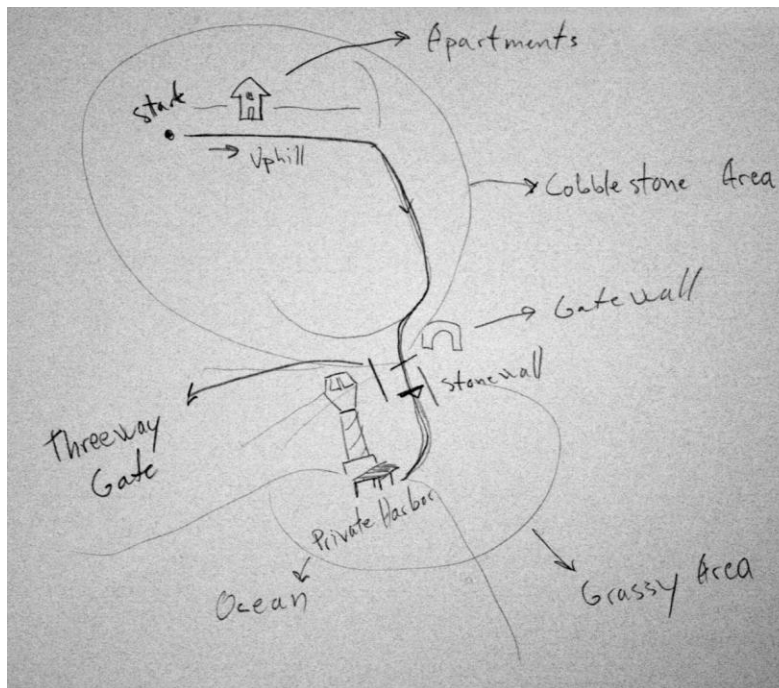 Apartments
Start
Uphill
Cobblestone Area
Gatewall
Stonewall
Threeway
Gate
Private Harbor
Ocean
Grassy Area